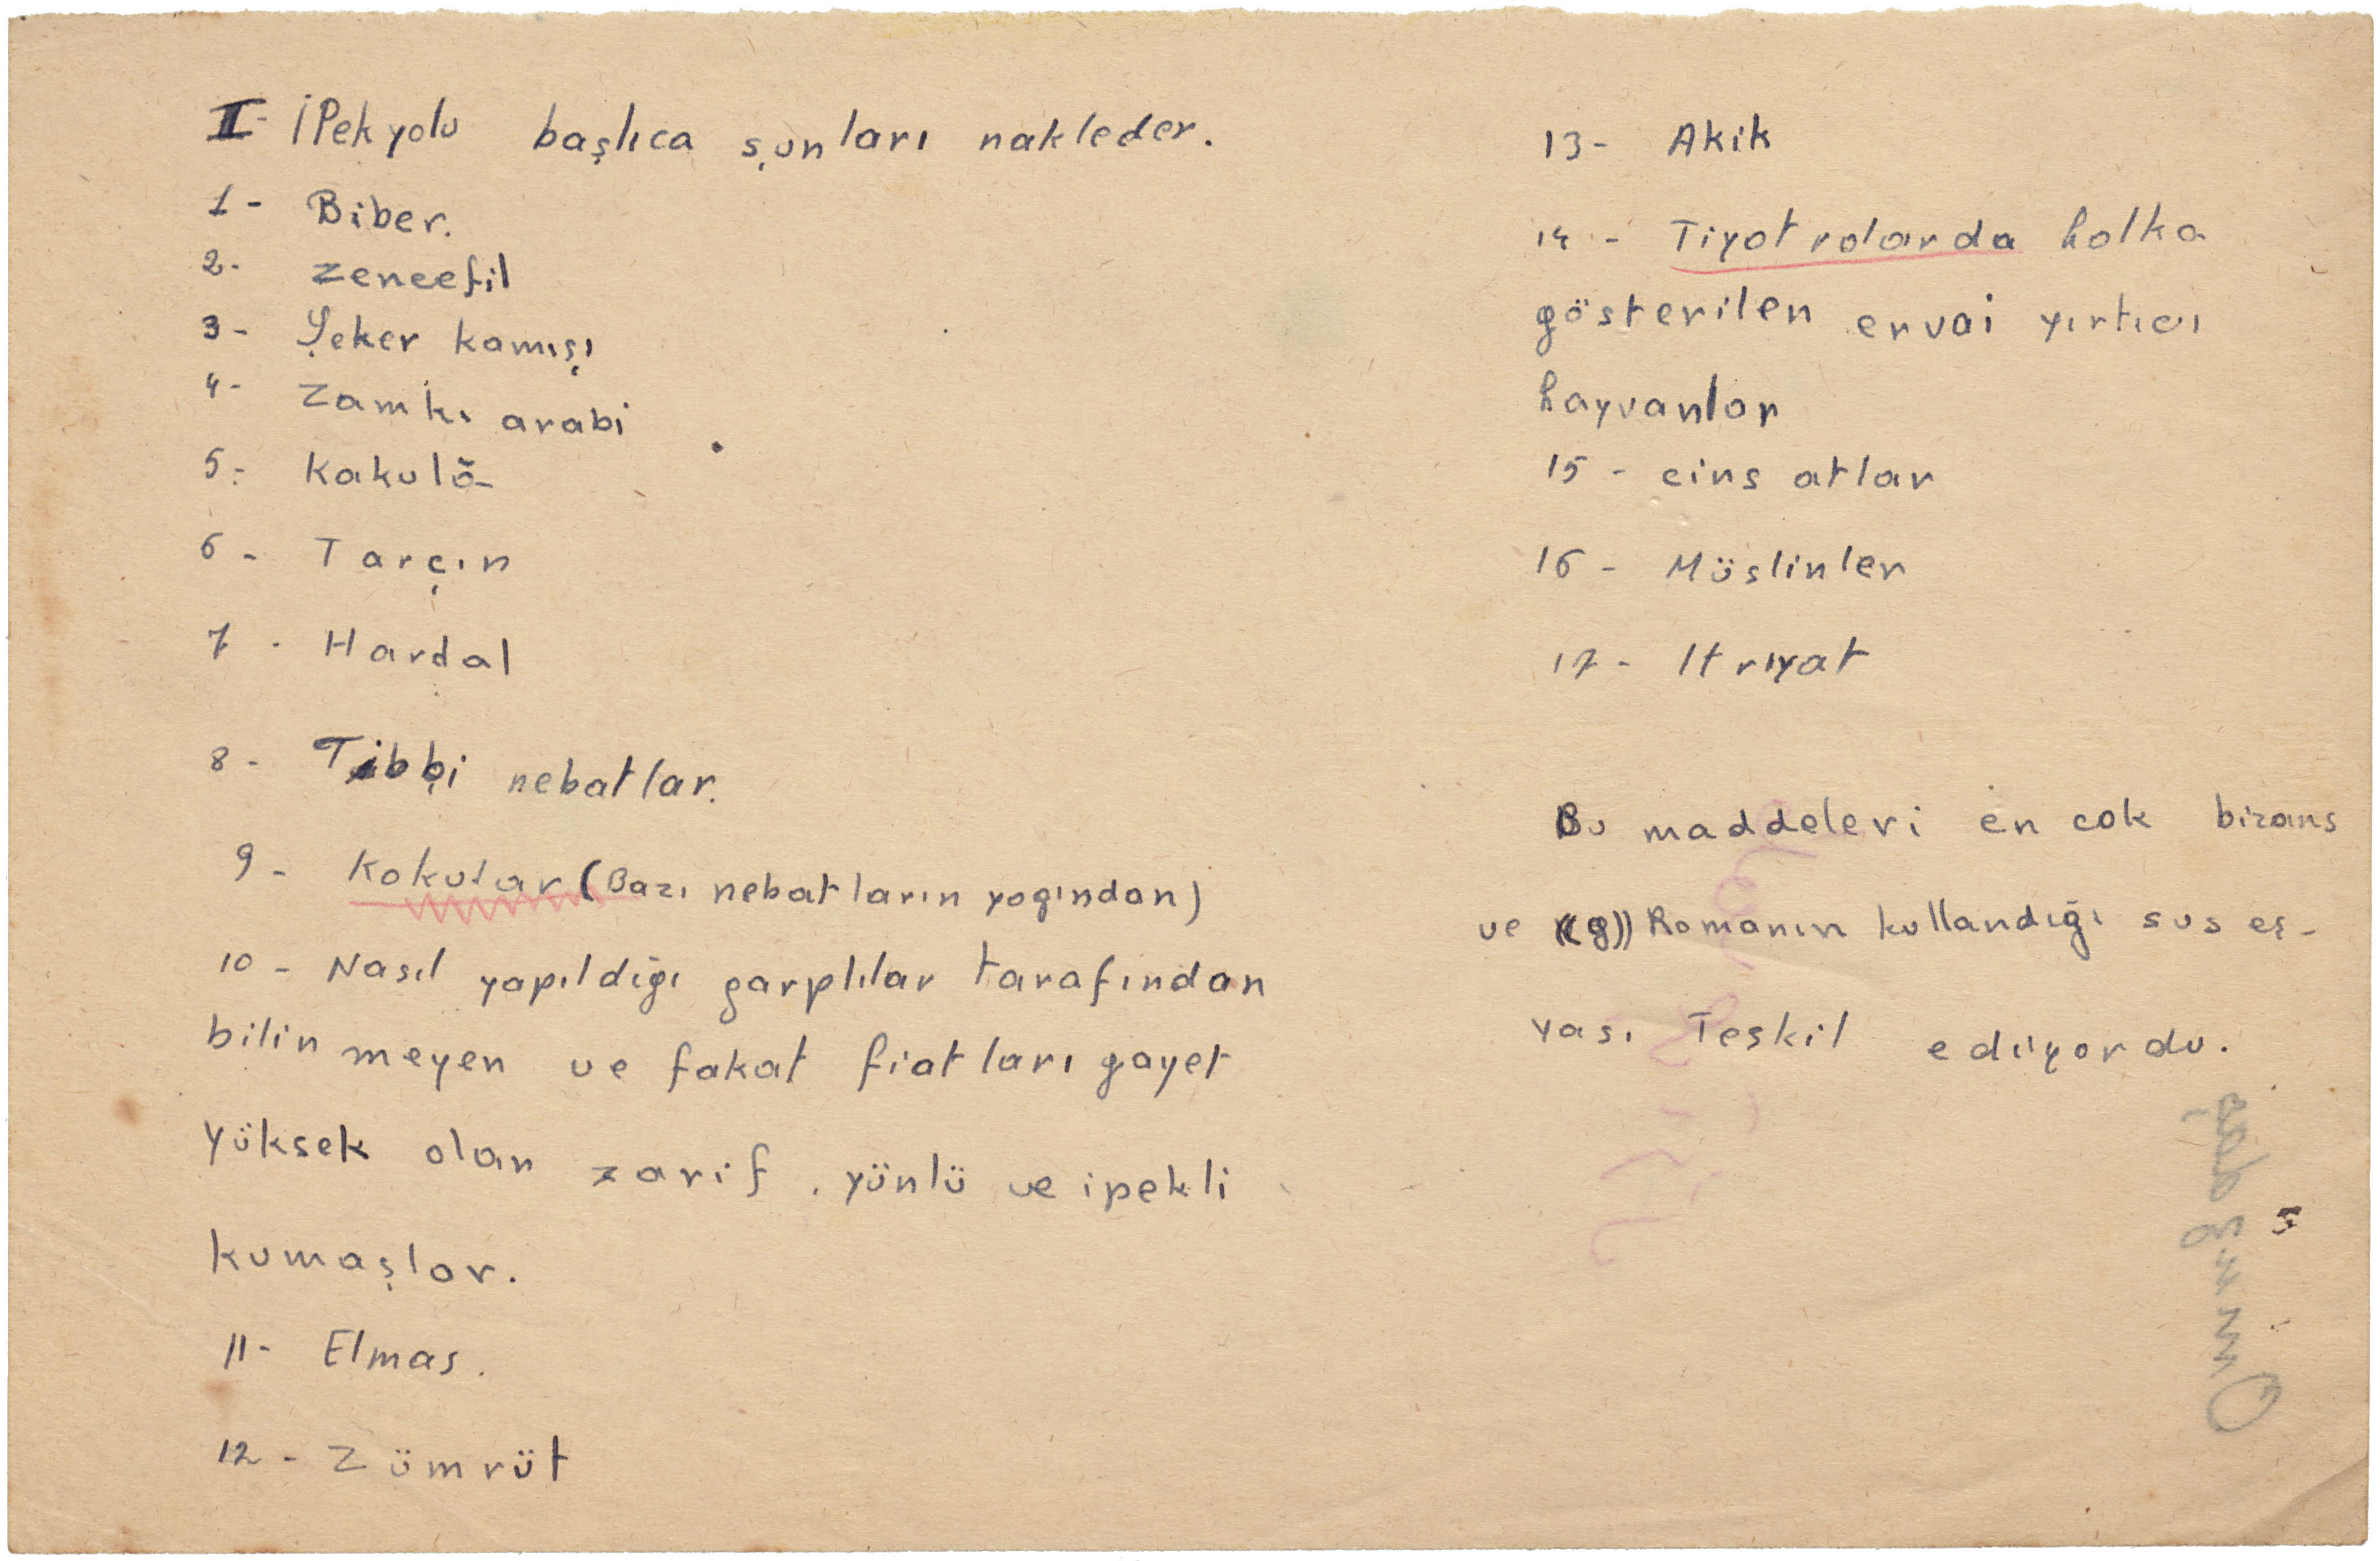 II- İPek yolu başlıca şunları nakleder.
1- Biber.
2- zeneefil
3- Şeker kamışı
4- Zamkı arabi
5- Kakulã
6- Tarçın
7- Hardal
8- Tibbi nebatlar.
9- Kokular (Bazı nebatların yogından)
10- Nasıl yapıldığı garplılar tarafından
bilinmeyen ve fakat fiatları gayet
yüksek olan zarif, yünlü ve ipekli
kumaşlar.
11- Elmas.
12- Zümrüt
13- Akik
14- Tiyotrolarda halka
gösterilen ervai yırtıcı
hayvanlar
15- cins atlar
16- Müslinler
17- Itrıyat
Bu maddeleri en cok bizans
ve ((8)) Romanın kullandığı sus eş-
yası Teşkil ediyordu.